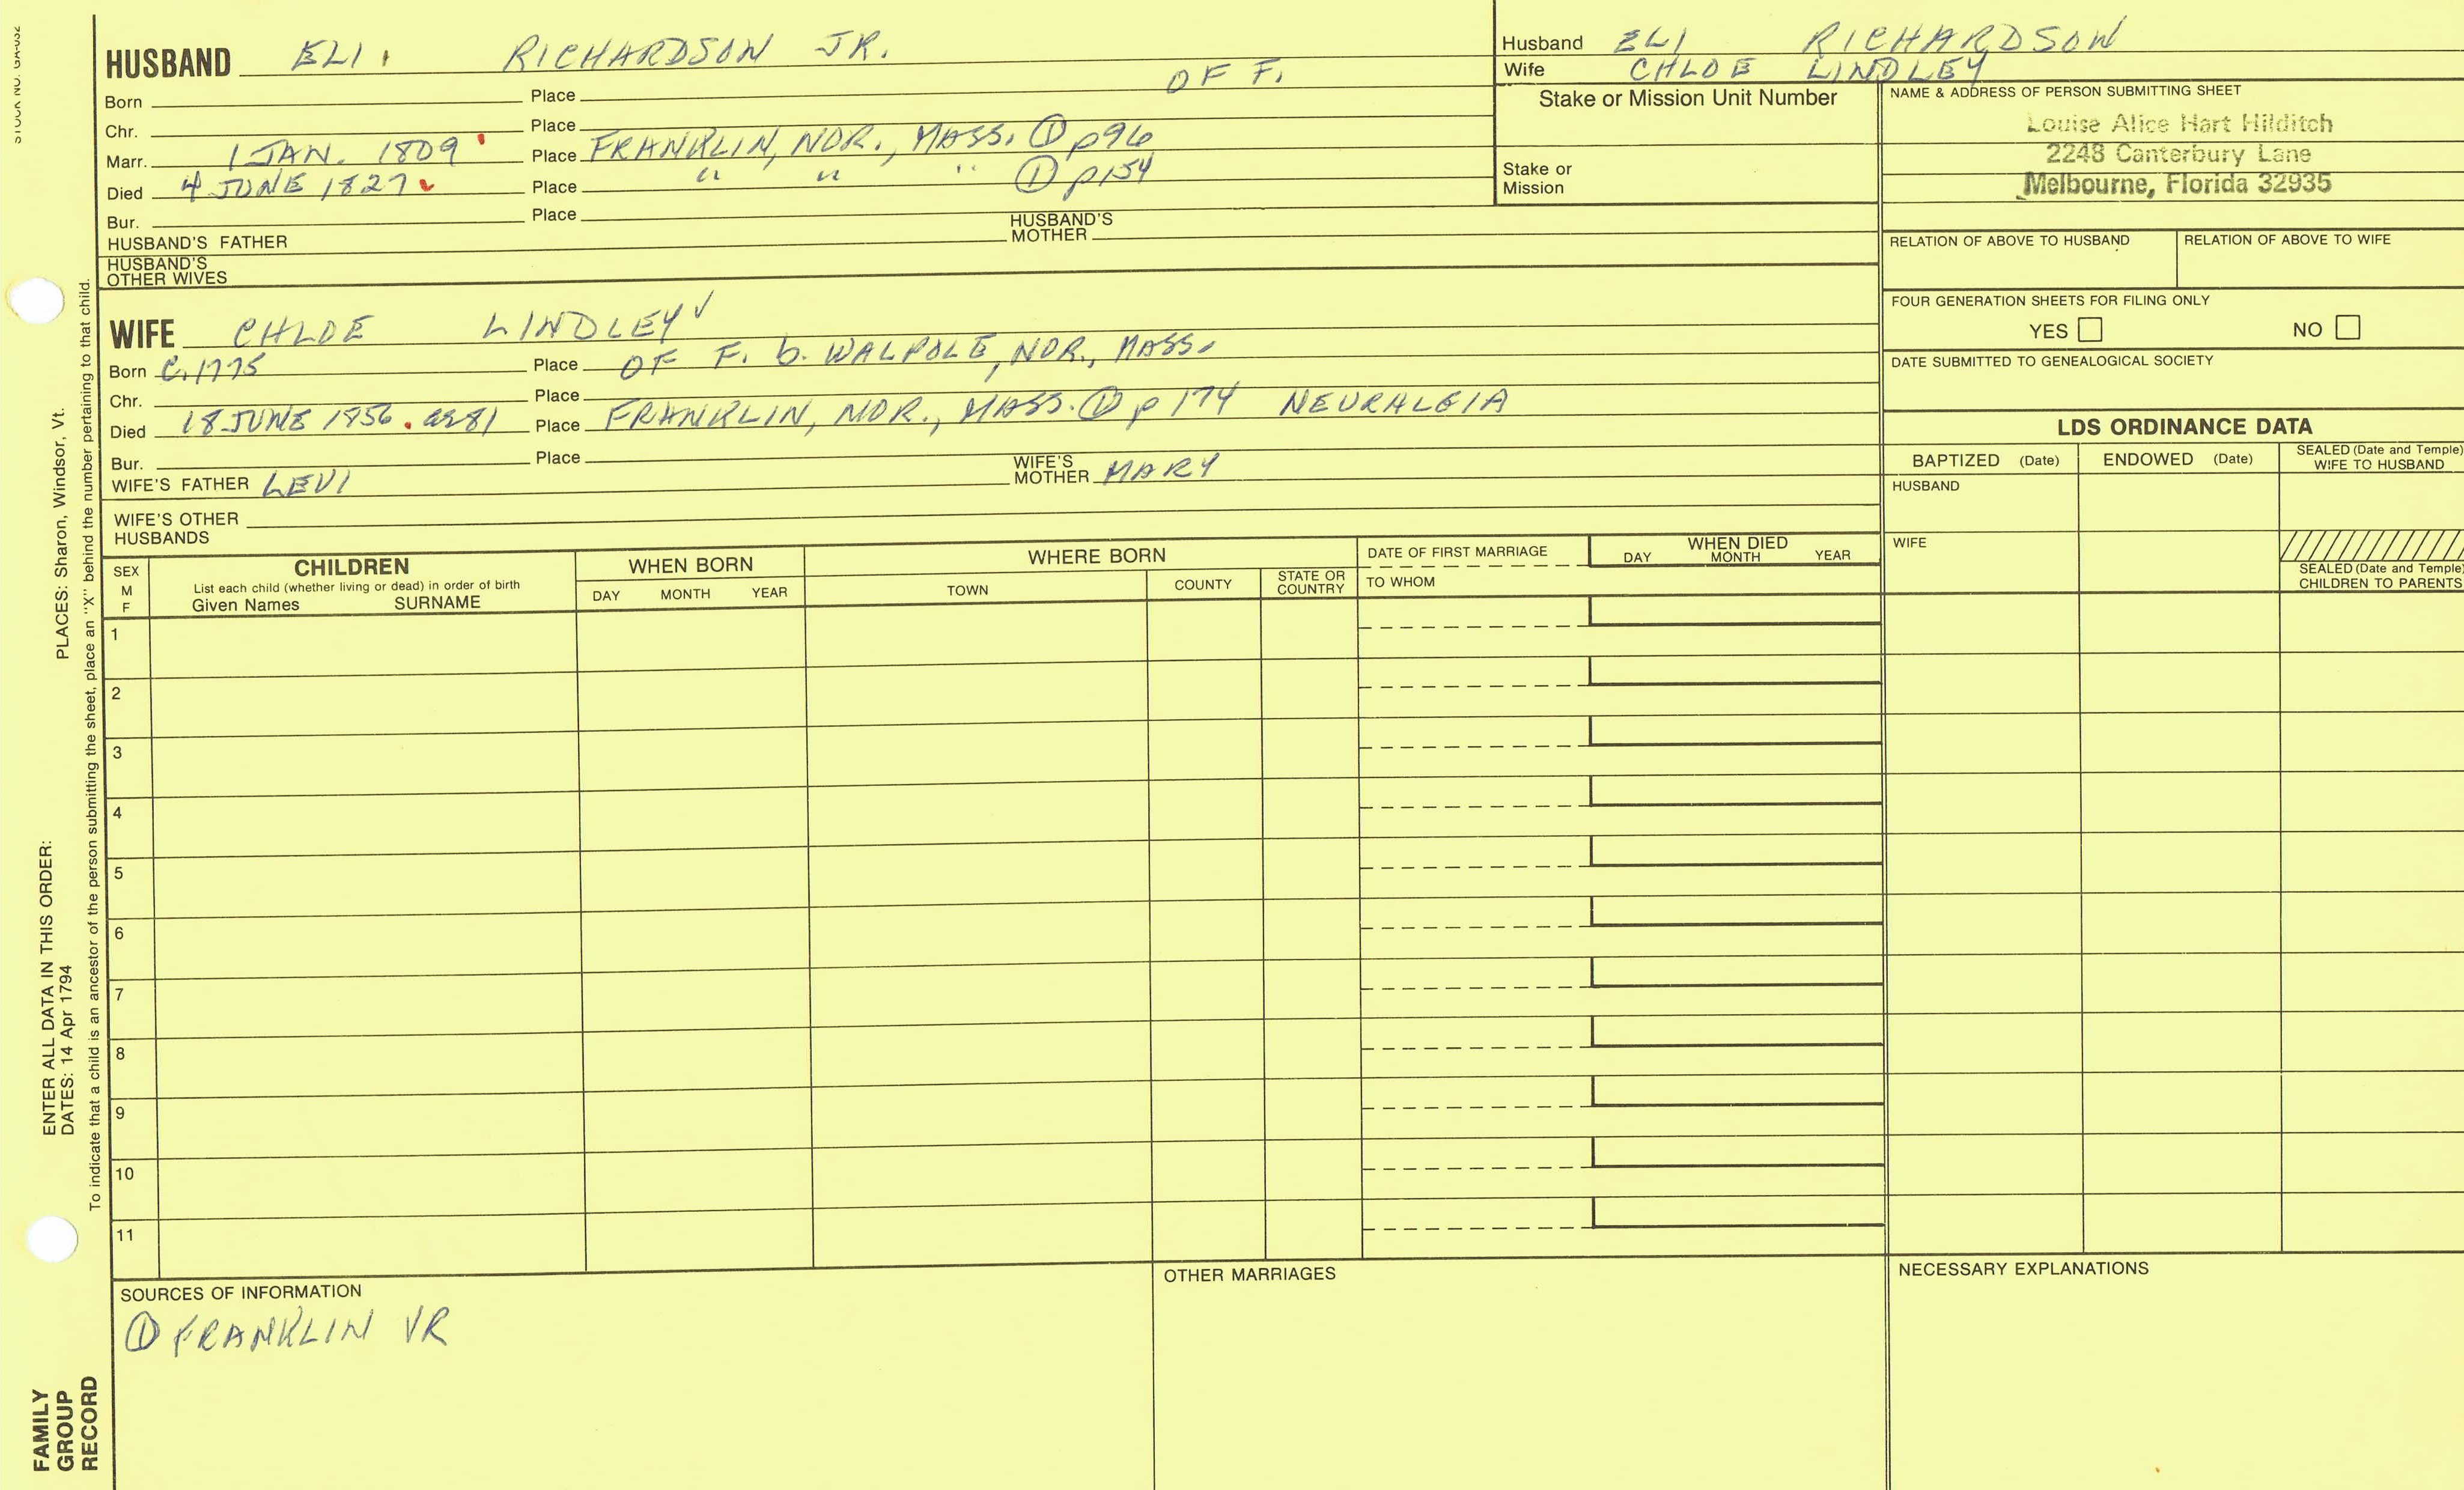 STOCK NO. GA-032
HUSBAND ELI. RICHARDSON JR. OF F.
Born Place
Chr. Place
Marr. 1 JAN. 1809 Place FRANKLIN, NOR., MASS. ① p96
Died 4 JUNE 1827 Place " " " ① p154
Bur. Place
HUSBAND'S FATHER HUSBAND'S MOTHER
HUSBAND'S OTHER WIVES
WIFE CHLOE LINDLEY √
Born C.1775 Place OF F. b. WALPOLE, NOR., MASS.
Chr. Place
Died 18 JUNE 1856. ae81 Place FRANKLIN, NOR., MASS. ① p 174 NEURALGIA
Bur. Place
WIFE'S FATHER LEVI WIFE'S MOTHER MARY
WIFE'S OTHER HUSBANDS
Husband ELI RICHARDSON
Wife CHLOE LINDLEY
Stake or Mission Unit Number
Stake or
Mission
NAME & ADDRESS OF PERSON SUBMITTING SHEET
Louise Alice Hart Hilditch
2248 Canterbury Lane
Melbourne, Florida 32935
RELATION OF ABOVE TO HUSBAND RELATION OF ABOVE TO WIFE
FOUR GENERATION SHEETS FOR FILING ONLY
YES NO
DATE SUBMITTED TO GENEALOGICAL SOCIETY
LDS ORDINANCE DATA
BAPTIZED (Date) ENDOWED (Date) SEALED (Date and Temple) WIFE TO HUSBAND
HUSBAND
WIFE
SEALED (Date and Temple)
CHILDREN TO PARENTS
SEX
M
F
CHILDREN
List each child (whether living or dead) in order of birth
Given Names SURNAME
WHEN BORN
DAY MONTH YEAR
WHERE BORN
TOWN COUNTY STATE OR COUNTRY
DATE OF FIRST MARRIAGE
TO WHOM
WHEN DIED
DAY MONTH YEAR
1
2
3
4
5
6
7
8
9
10
11
SOURCES OF INFORMATION
① FRANKLIN VR
OTHER MARRIAGES
NECESSARY EXPLANATIONS
PLACES: Sharon, Windsor, Vt.
ENTER ALL DATA IN THIS ORDER:
DATES: 14 Apr 1794
To indicate that a child is an ancestor of the person submitting the sheet, place an "X" behind the number pertaining to that child.
FAMILY
GROUP
RECORD